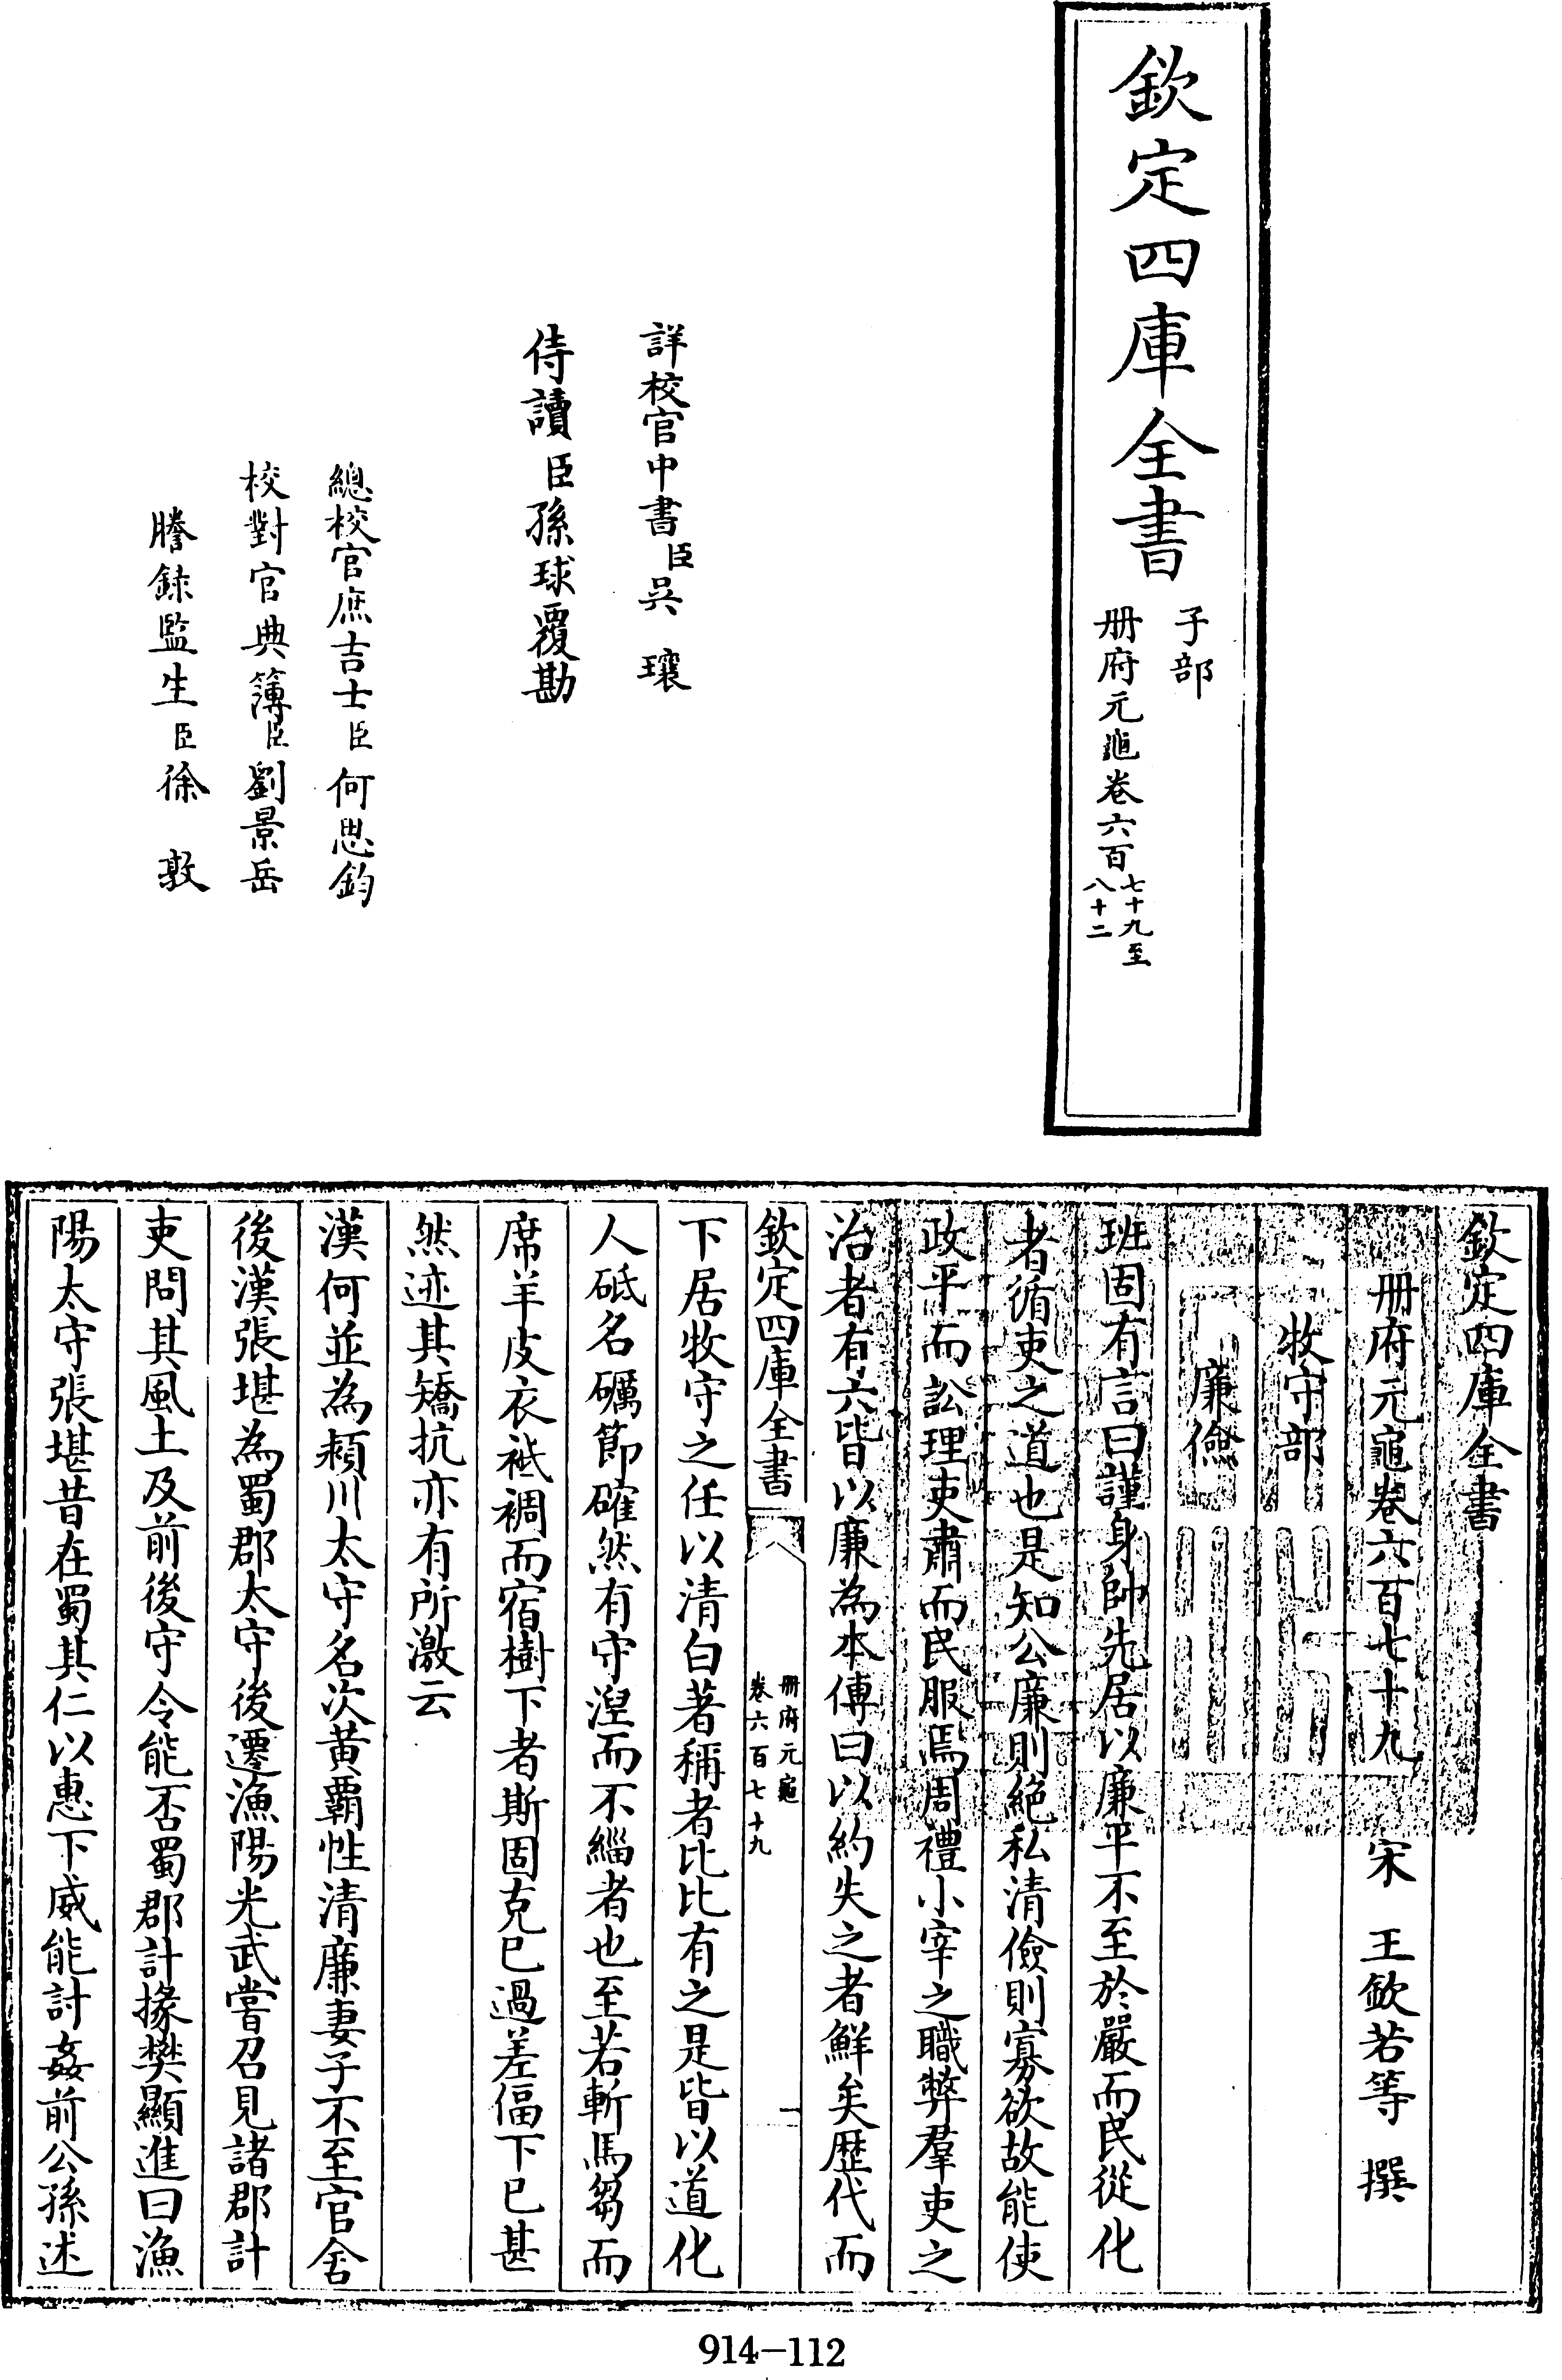 欽定四庫全書
子部
册府元龜卷六百七十九至
八十二
詳校官中書臣吳瓖
侍讀臣孫球覆勘
總校官庶吉士臣何思鈞
校對官典簿臣劉景岳
謄錄監生臣徐敦
欽定四庫全書
册府元龜卷六百七十九 宋 王欽若等 撰
牧守部
廉儉
班固有言曰謹身帥先居以廉平不至於嚴而民從化
者循吏之道也是知公廉則絶私清儉則寡欲故能使
政平而訟理吏肅而民服焉周禮小宰之職弊羣吏之
治者有六皆以廉為本傳曰以約失之者鮮矣歴代而
欽定四庫全書
册府元龜
卷六百七十九
一
下居牧守之任以清白著稱者比比有之是皆以道化
人砥名礪節確然有守湼而不緇者也至若斬馬芻而
席羊皮衣袛裯而宿樹下者斯固克已過差偪下已甚
然迹其矯抗亦有所激云
漢何並為潁川太守名次黄霸性清廉妻子不至官舍
後漢張堪為蜀郡太守後遷漁陽光武嘗召見諸郡計
吏問其風土及前後守令能否蜀郡計掾樊顯進曰漁
陽太守張堪昔在蜀其仁以惠下威能討姦前公孫述
914-112